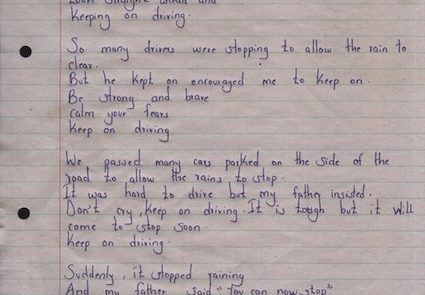 Look straight ahead and
Keeping on driving.
So many drivers were stopping to allow the rain to
clear.
But he kept on encouraged me to keep on.
Be strong and brave
calm your fears
Keep on driving
We passed many cars parked on the side of the
road to allow the rains to stop.
It was hard to drive but my father insisted.
Don't cry, keep on driving. It is tough but it will
come to stop soon.
Keep on driving.
Suddenly, it stopped raining
And my father said "You can now stop"